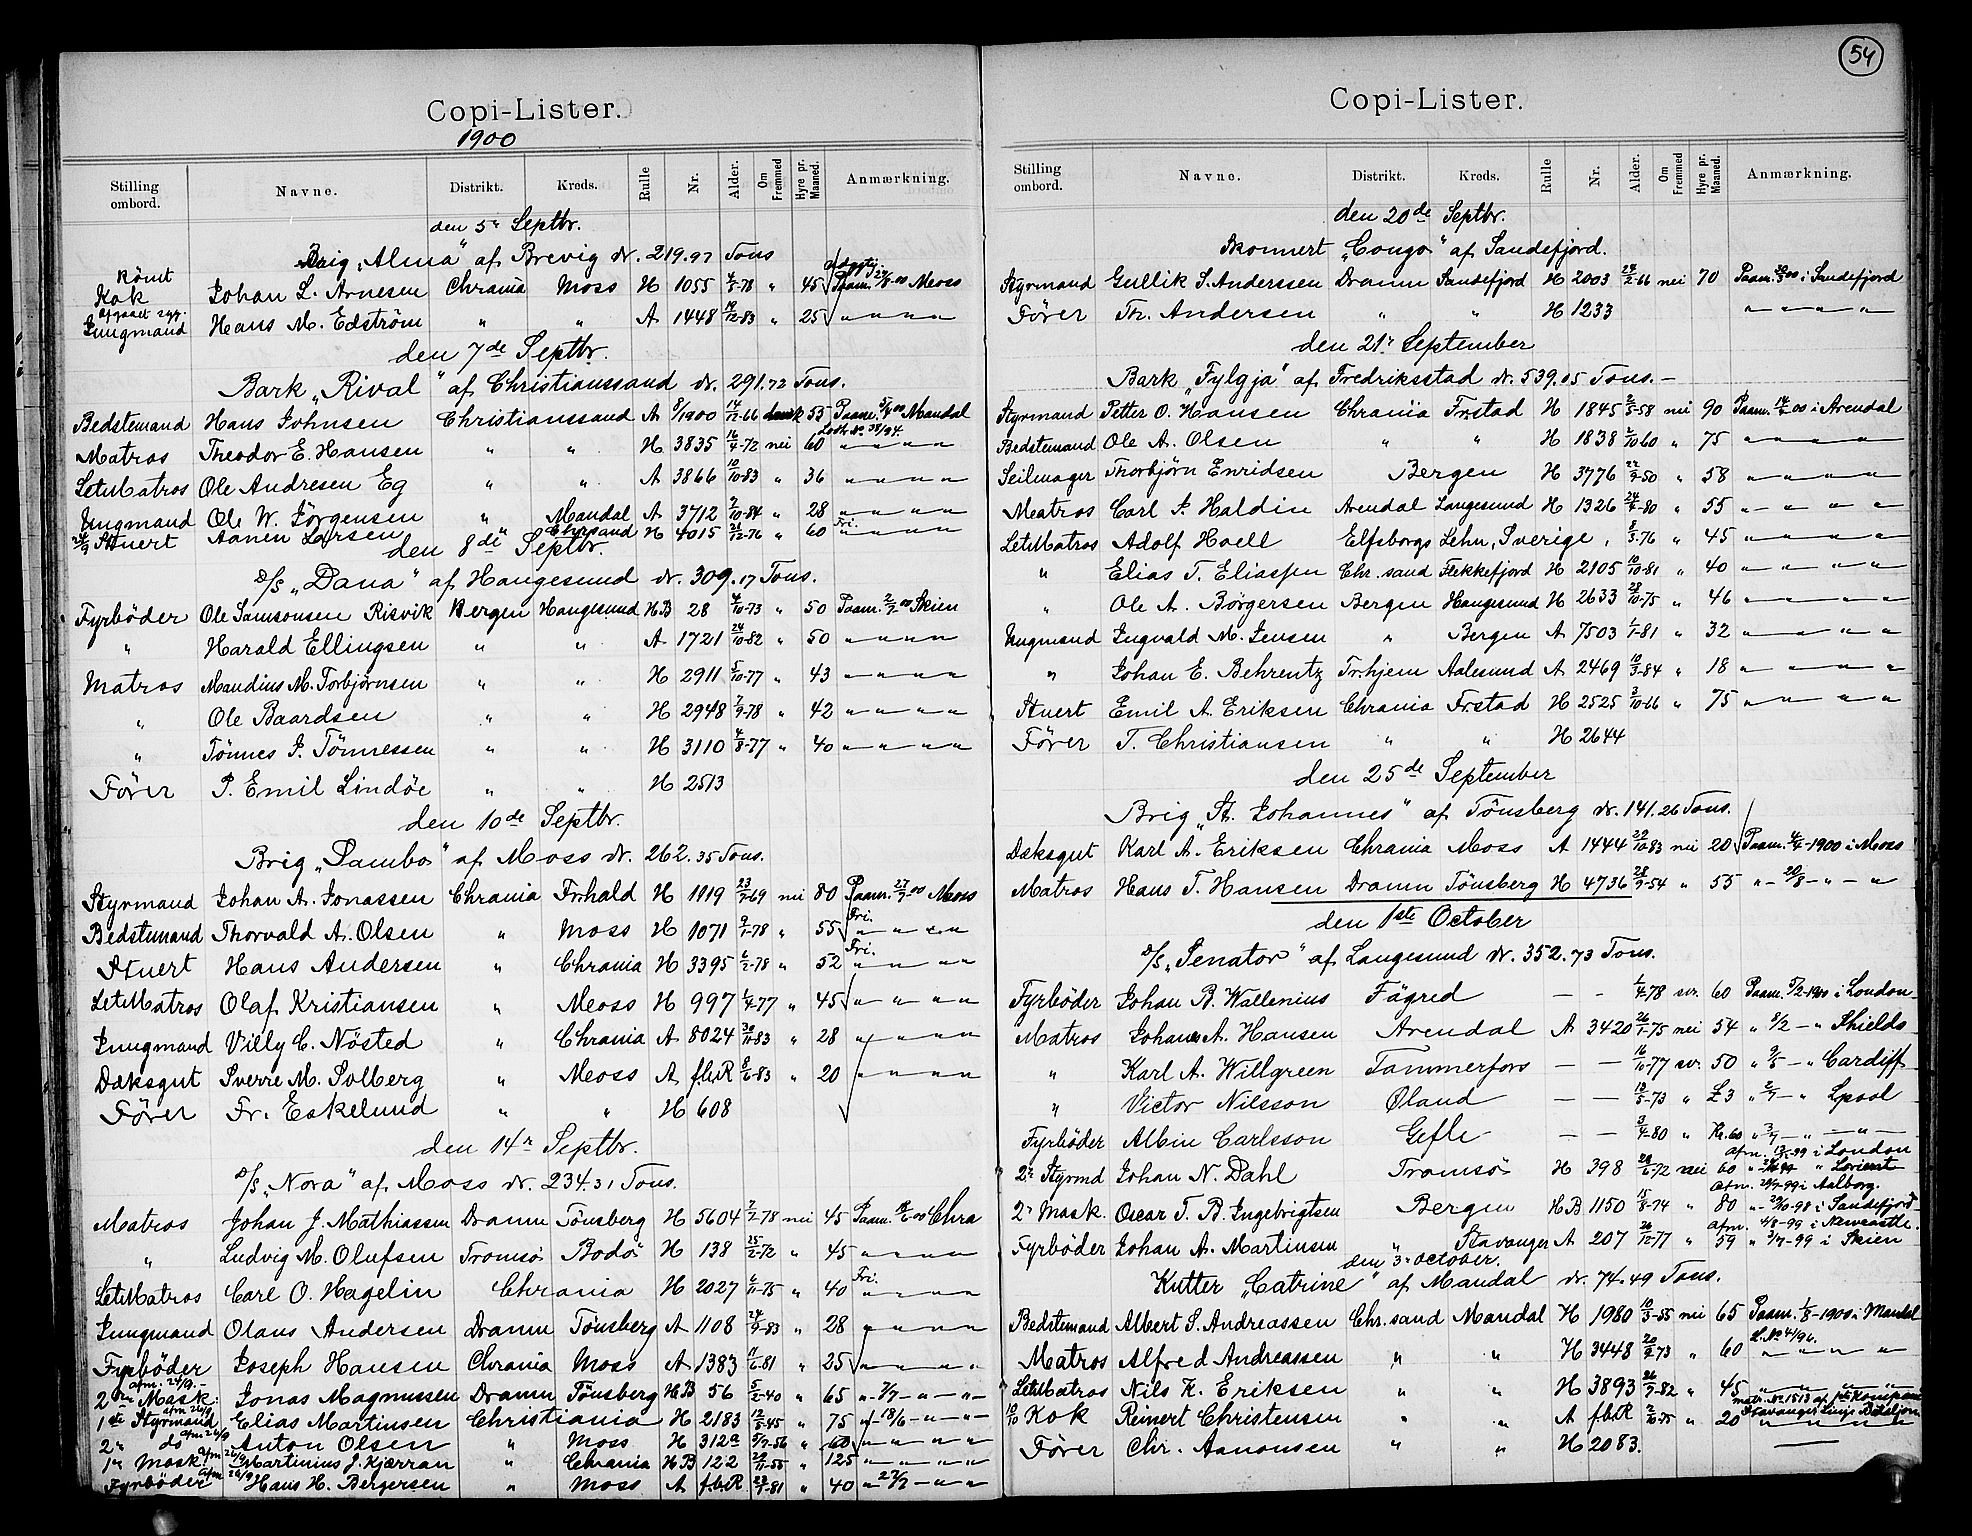 Copi-Lister.
1900
Stilling ombord. Navne. Distrikt. Kreds. Rulle Nr. Alder. Om Fremmed Hyre pr. Maaned. Anmærkning.
den 5te Septbr.
Brig „Alma" af Brevig dr. 219.97 Tons
Rømt
Kok Johan L. Arnesen Chrania Moss H 1055 -78 " 45 Paam. 00 Moss
Afgaaet syg.
Jungmand Hans M. Edström " " A 1448 19/12-83 " 25 " " " "
den 7de Septbr.
Bark „Rival" af Christianssand dr. 291.72 Tons.
Bedstemand Hans Johnsen Christianssand A 8/1900 14/12-66 dansk 55 Paam. 00 Mandal
Matros Theodor E. Hansen " " H 3835 16/4-72 nei 60 " " " "
LetMatros Ole Andresen Eg " " A 3866 10/10-83 " 36 " " " "
Ungmand Ole W. Jørgensen " Mandal A 3712 7/10-84 " 28 " " " "
Stuert Aanen Larsen " Chrsand H 4015 21/12-76 " 60 Fri. " " "
den 8de Septbr.
D/S „Dana" af Haugesund dr. 309.17 Tons.
Fyrbøder Ole Samsonsen Risvik Bergen Haugesund HB 28 4/10-73 " 50 Paam. 2/7 00 Skien
" Harald Ellingsen " " A 1721 24/10-82 " 50 " " " "
Matros Maudius M. Torbjørnsen " " H 2911 5/10-77 " 43 " " " "
" Ole Baardsen " " H 2948 7/9-78 " 42 " " " "
" Tönnes J. Tönnessen " " H 3110 4/8-77 " 40 " " " "
Förer P. Emil Lindöe " " H 2513
den 10de Septbr.
Brig „Sambo" af Moss dr. 262.35 Tons.
Styrmand Johan A. Jonassen Chrania Frhald H 1019 23/7-69 nei 80 Paam. 27/7 00 Moss
Bedstemand Thorvald A. Olsen " Moss H 1071 9/1-78 " 55 Fri. " " " "
Stuert Hans Andersen " Chrania H 3395 6/2-78 " 52 Fri. " " " "
LetMatros Olaf Kristiansen " Moss H 997 1/4-77 " 45 " " " "
Jungmand Villy C. Nösted " Chrania A 8024 30/11-83 " 28 " " " "
Dæksgut Sverre M. Solberg " Moss A f.b.R 8/6-83 " 20 " " " "
Förer Fr. Eskelund " " H 608
den 14de Septbr.
D/S „Nora" af Moss dr. 234.31 Tons.
Matros Johan J. Mathiassen Dramn Tönsberg H 5604 7/2-78 nei 45 Paam. 00 Chra
" Ludvig M. Olufsen Tromsö Bodö H 138 25/2-72 " 45 " " " "
LetMatros Carl O. Hagelin Chrania H 2027 6/11-75 " 40 Fri. " " " "
Jungmand Olaus Andersen Dramn Tönsberg A 1108 24/9-83 " 28 " " " "
Fyrbøder Joseph Hansen Chrania Moss A 1383 11/6-81 " 25 " " " "
afm. 24/9.
2den Mask. Jonas Magnussen Dramn Tönsberg HB 56 5/2-40 " 65 " 7/7 " " "
afm 26/9
1ste Styrmand Elias Martinsen Christiania H 2183 12/8-45 " 75 " 18/6 " " "
2den do afm 26/9 Anton Olsen " Moss H 312a 5/7-56 " 60 " " " "
1ste Mask. afm Martinius J. Kjærran " Chrania HB 122 22/11-55 " 125 " " " "
Fyrbøder afm 26/9 Hans H. Bergersen " Moss A f.b.R. 23/1-81 " 40 " 27/7 " " "
54
Copi-Lister.
Stilling ombord. Navne. Distrikt. Kreds. Rulle Nr. Alder. Om Fremmed Hyre pr. Maaned. Anmærkning.
den 20de Septbr.
Skonnert „Congo" af Sandefjord.
Styrmand Gullik S. Anderssen Dramn Sandefjord H 2003 28/2-66 nei 70 Paam. 00 i Sandefjord
Förer Th. Andersen " " H 1233 " " " "
den 21de September
Bark „Fylgja" af Fredriksstad dr. 539.05 Tons.
Styrmand Petter O. Hansen Chrania Frstad H 1845 2/5-58 nei 90 Paam. 14/2 00 i Arendal
Bedstemand Ole A. Olsen " " H 1838 2/10 60 " 75 " " " "
Seilmager Thorbjörn Enridsen Bergen H 3776 22/9-50 " 58 " " " "
Matros Carl J. Haldin Arendal Langesund H 1326 24/4-80 " 55 " " " "
LetMatros Adolf Hoell Elfsborgs Lehn, Sverige, 8/3-76 " 45 " " " "
" Elias T. Eliassen Chr.sand Flekkefjord H 2105 10/10-81 " 40 " " " "
" Ole A. Börgersen Bergen Haugesund H 2633 28/10-75 " 46 " " " "
Ungmand Ingvald M. Jensen " Bergen A 7503 1/1-81 " 32 " " " "
" Johan E. Behrentz Tr.hjem Aalesund A 2469 10/3-84 " 18 " " " "
Stuert Emil A. Eriksen Chrania Frstad H 2525 3/10-66 " 75 " " " "
Förer T. Christiansen " " H 2644
den 25de September
Brig „St. Johannes" af Tönsberg dr. 141.26 Tons.
Dæksgut Karl A. Eriksen Chrania Moss A 1444 22/10-83 nei 20 Paam. 1900 i Moss
Matros Hans T. Hansen Dramn Tönsberg H 4736 28/9-54 " 55 " 20/8 " "
den 1ste October
D/S „Senator" af Langesund dr. 352.73 Tons.
Fyrbøder Johan R. Wallenius Fägred — — 1/4-78 sv. 60 Paam. 5/2-1900 i London
Matros Johan A. Hansen Arendal A 3420 26/1-75 nei 54 " 8/2 — " Shields
" Karl A. Willgreen Tammerfors — — 16/10-77 sv. 50 " 9/5 — " Cardiff
" Victor Nilsson Öland — — 19/5-73 " £3 " 2/7 — " Lpool
Fyrbøder Albin Carlsson Gefle — — 3/4-80 " Kr. 60 " 3/7 — " — " —
afm. 13/5-99 i London
2den Styrmd Johan N. Dahl Tromsö H 398 28/6-72 nei 60 " Lorient
afm. 29/7-99 i Aalborg.
2den Mask. Oscar T. B. Ingebrigtsen Bergen HB 1150 15/8-74 " 80 " 29/10-98 i Sandefjord
afm. 4/8-99 i Newcastle.
Fyrbøder Johan A. Martinsen " Stavanger A 207 26/12-77 " 59 " 3/7-99 i Skien
den 3de October.
Kutter „Catrine" af Mandal dr. 74.49 Tons.
Bedstemand Albert S. Andreassen Chr.sand Mandal H 1980 10/3-55 nei 65 Paam. 1/8-1900 i Mandal
L. No 41/96.
Matros Alfred Andreassen " " H 3448 20/9-73 " 60 " " " "
LetMatros Nils K. Eriksen " " H 3893 26/9-82 " 45 " " " "
10/10 Kok Reinert Christensen " " A f.b.R 2/10-75 " 20 " " " "
Förer Chr. Aanonsen " " H 2083. —